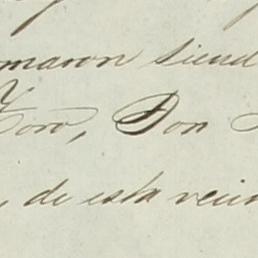 maron siend
Toro, Don
, de esta vecin